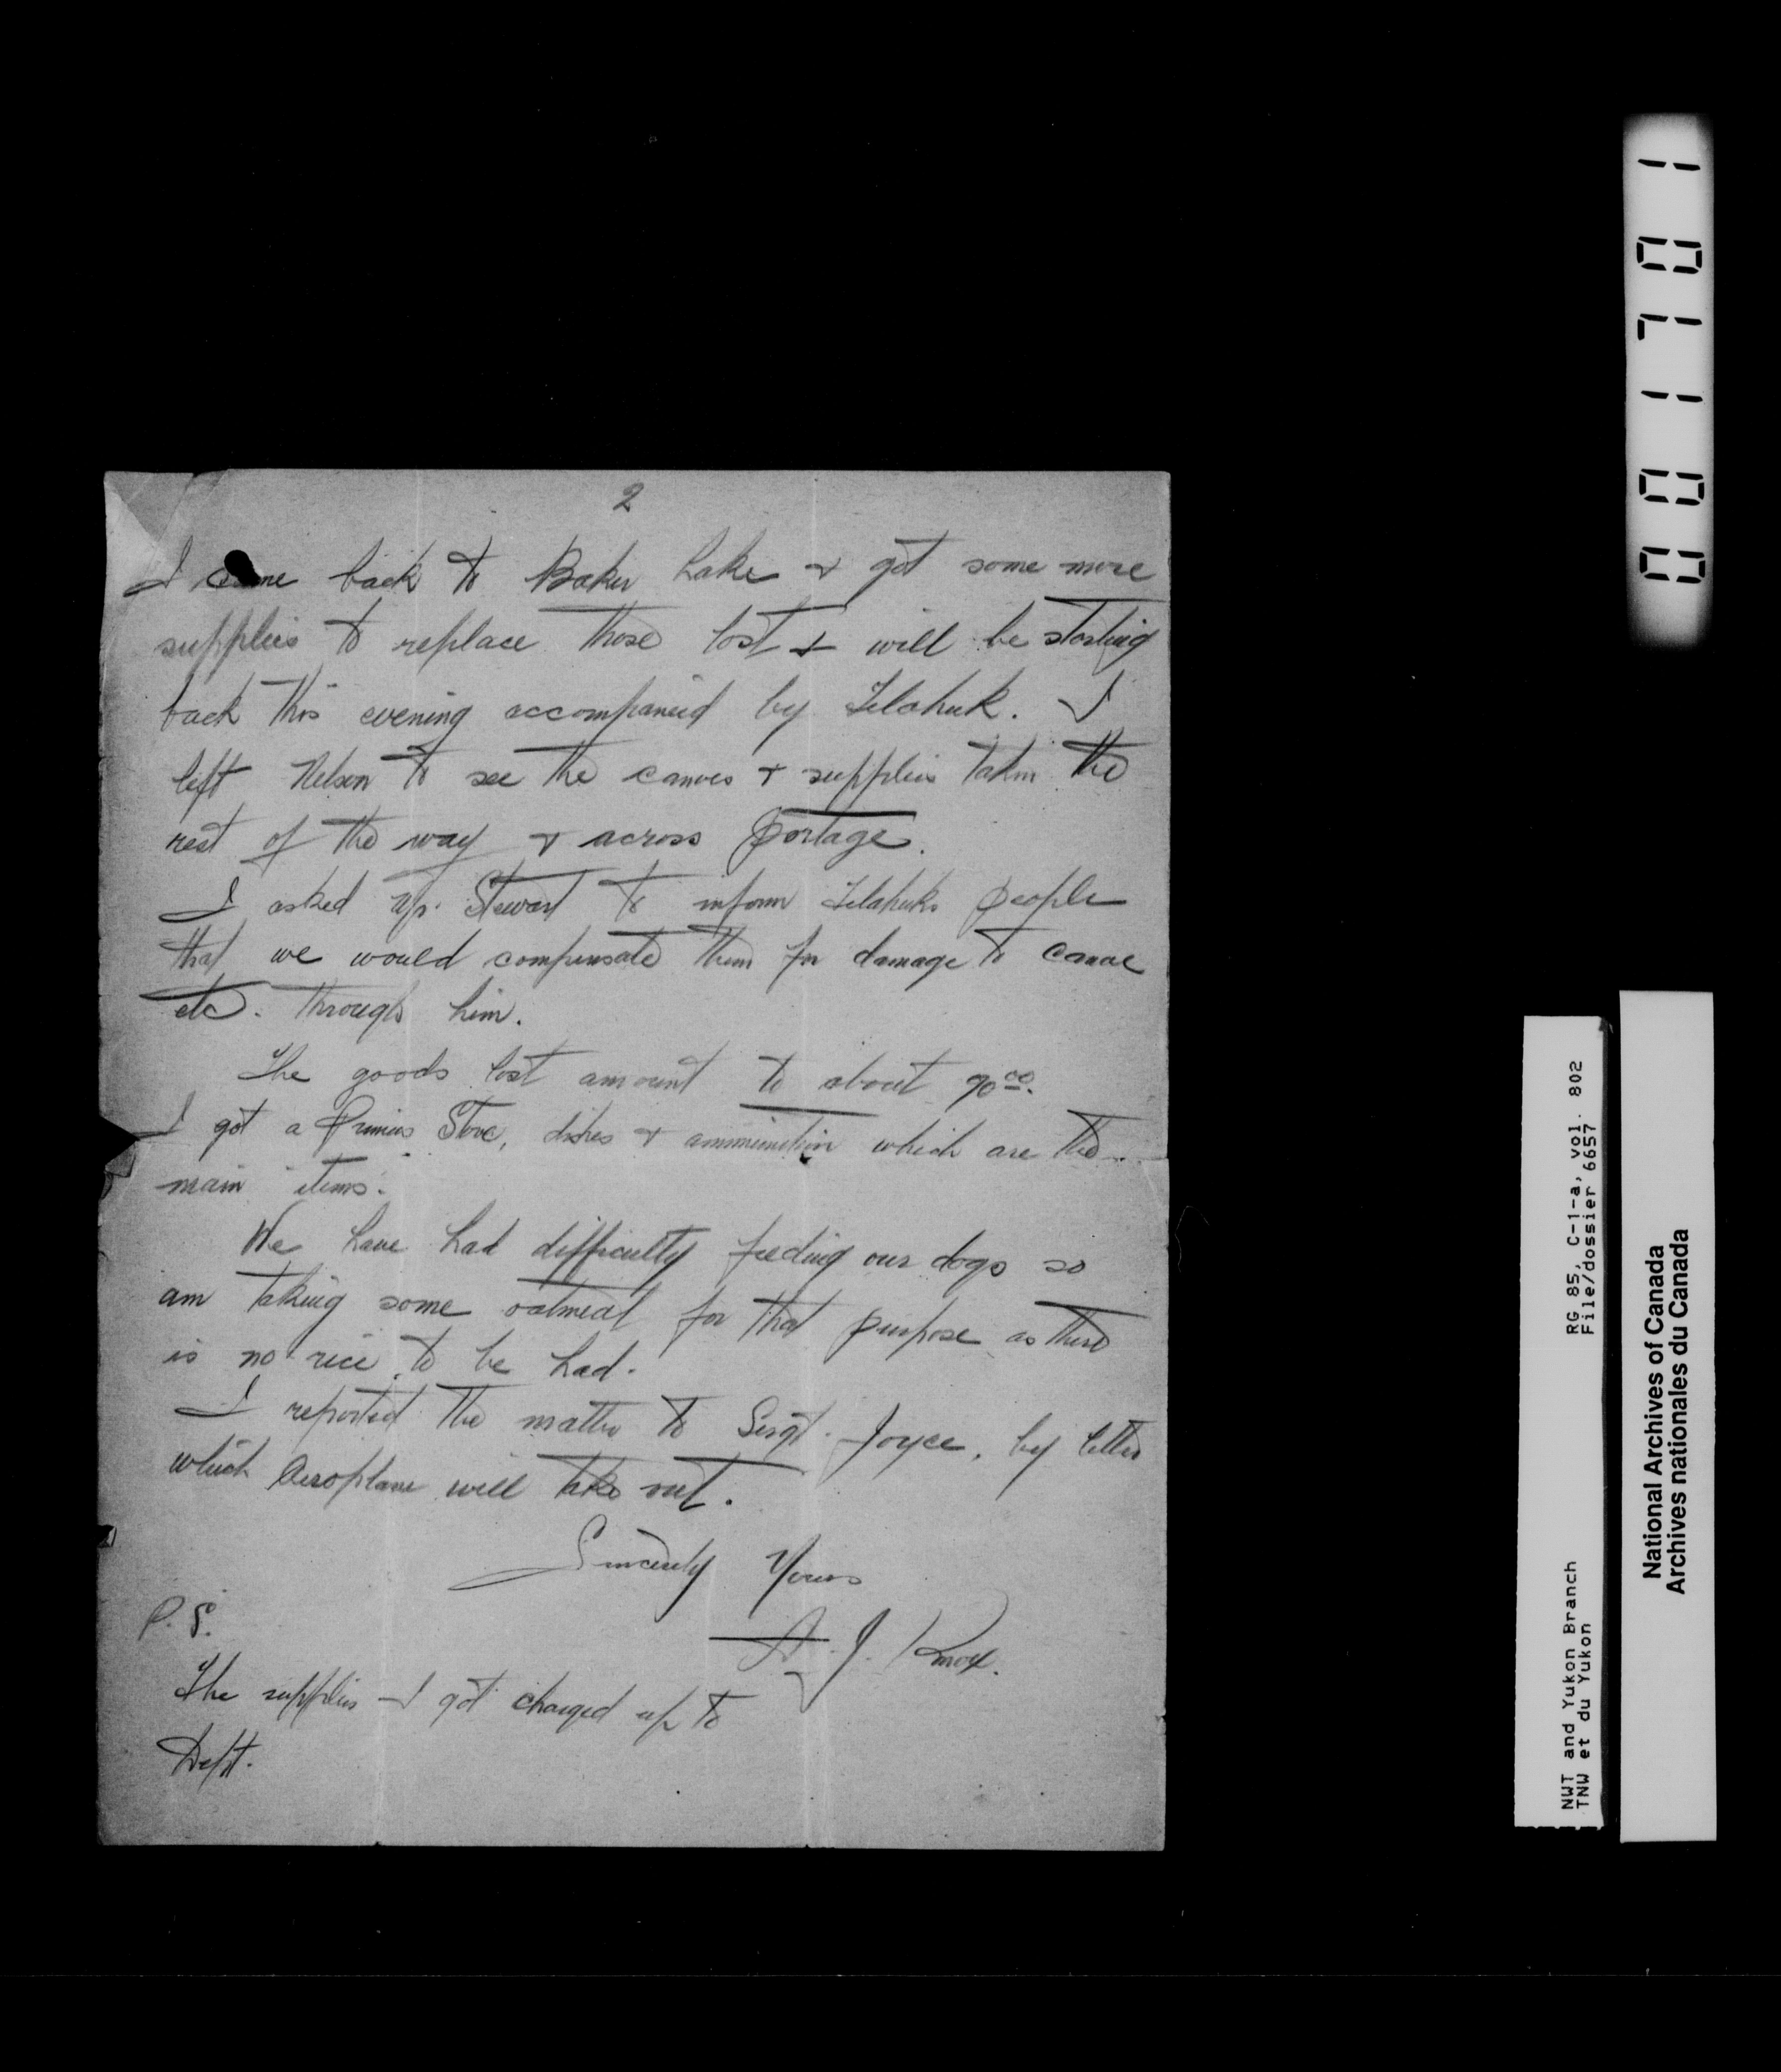 2
I came back to Baker Lake + got some more
supplies to replace those lost + will be starting
back this evening accompanied by Telahuk. I
left Nelson to see the canoes + supplies taken the
rest of the way + across portage.
I asked Mr. Stewart to inform Telahuks people
that we would compensate them for damage to canoe
etc. through him.
The goods lost amount to about 90.00.
I got a Primus Stove, dishes + ammunition which are the
main items.
We have had difficulty feeding our dogs so
am taking some oatmeal for that purpose as there
is no rice to be had.
I reported the matter to Sergt. Joyce, by letter
which Aeroplane will take out.
Sincerely Yours
A. J. Knox.
P. S.
The supplies I got charged up to
Dept.
001701
RG 85, C-1-a, vol. 802
File/dossier 6657
NWT and Yukon Branch
TNW et du Yukon
National Archives of Canada
Archives nationales du Canada